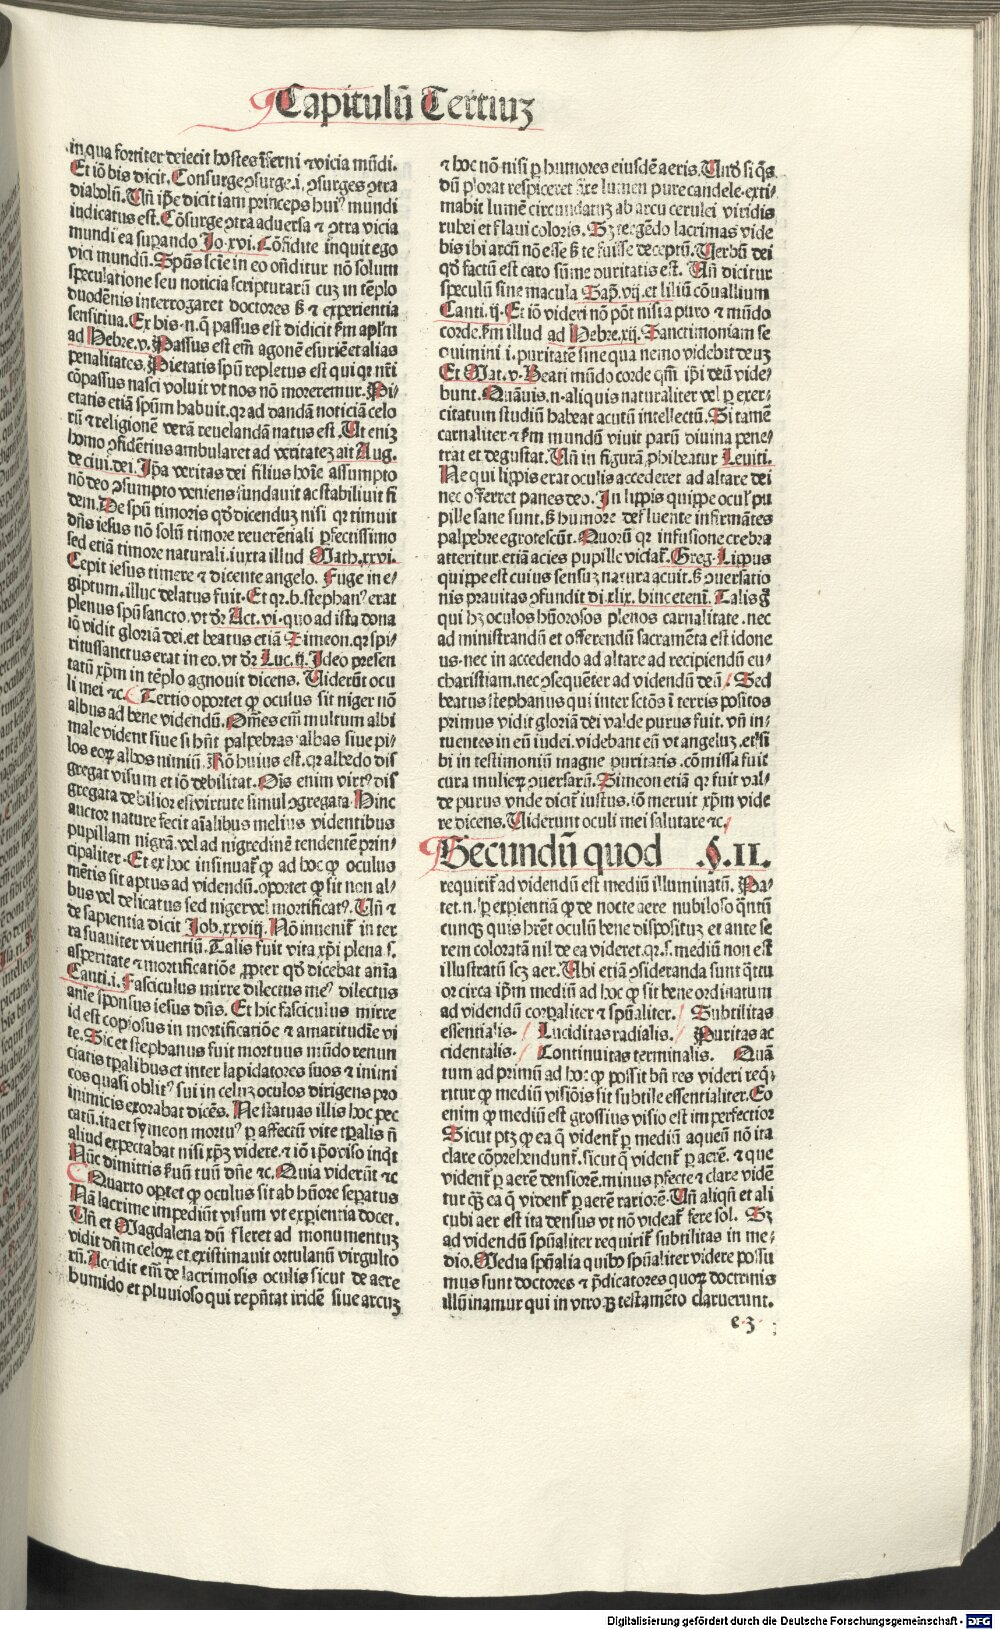 Capitulū Tertiuꝫ
in qua fortiter deiecit hostes īferni ⁊ vicia mūdi.
Et iō bis dicit. Consurge ꝯsurge .i. ꝯsurges ꝯtra
diabolū. Vñ ip̄e dicit iam princeps huiꝰ mundi
iudicatus est. Cōsurge ꝯtra aduersa ⁊ ꝯtra vicia
mundi ea suꝑando Jo. xvi. Cōfidite inquit ego
vici mundū. Spūs sciē in eo oñditur nō solum
speculatione seu noticia scripturarū cuꝫ in tēplo
duodēnis interrogaret doctores sꝫ ⁊ experientia
sensitiua. Ex his .n. q̄ passus est didicit ẜm apl̄m
ad Hebre. v. Passus est em̄ agonē esuriē et alias
penalitates. Pietatis spū repletus est qui qr nr̄i
cōpassus nasci voluit vt nos nō moreremur. Pi-
etatis etiā spūm habuit. qr ad dandā noticiā celo
rū ⁊ religionē verā reuelandā natus est. Vt eniꝫ
homo ꝯfidētius ambularet ad veritateꝫ ait Aug.
de ciui. dei. Ip̄a veritas dei filius hoīe assumpto
nō deo ꝯsumpto veniens fundauit ac stabiliuit fi
dem. De spū timoris qd̄ dicenduꝫ nisi qr timuit
dn̄s iesus nō solū timore reuerētiali ꝑfectissimo
sed etiā timore naturali. iuxta illud Math. xxvi.
Cepit iesus timere ⁊ dicente angelo. Fuge in e-
giptum. illuc delatus fuit. Et qr .b. stephanꝰ erat
plenus spū sancto. vt dr̄ Act. vi. quo ad ista dona
iō vidit gloriā dei. et beatus etiā Simeon. qr spi-
ritussanctus erat in eo. vt dr̄ Luc. ij. Ideo presen
tatū xp̄m in tēplo agnouit dicens. Viderūt ocu
li mei ⁊c. Tertio oportet ꝙ oculus sit niger nō
albus ad bene videndū. Om̄es em̄ multum albi
male vident siue si hñt palpebras albas siue pi-
los eoꝝ albos nimiū. Rō huius est. qr albedo dis
gregat visum et iō debilitat. Ois enim virtꝰ dis
gregata debilior est virtute simul ꝯgregata. Hinc
auctor nature fecit aīalibus melius videntibus
pupillam nigrā. vel ad nigredinē tendentē prin-
cipaliter. Et ex hoc insinuat̄ ꝙ ad hoc ꝙ oculus
mētis sit aptus ad videndū. oportet ꝙ sit non al-
bus vel delicatus sed niger vel mortificatꝰ. Vñ ⁊
de sapientia dicit Job. xxviij. Nō inuenit̄ in ter
ra suauiter viuentiū. Talis fuit vita xp̄i plena .s.
asperitate ⁊ mortificatiōe ꝓpter qd̄ dicebat aīa
Canti. i. Fasciculus mirre dilectus meꝰ dilectus
anīe sponsus iesus dn̄s. Et hic fasciculus mirre
id est copiosus in mortificatiōe ⁊ amaritudīe vi
te. Sic et stephanus fuit mortuus mūdo renun
ciatis tp̄alibus et inter lapidatores suos ⁊ inimi
cos quasi oblitꝰ sui in celuꝫ oculos dirigens pro
inimicis exorabat dicēs. Ne statuas illis hoc pec
catū. ita et symeon mortuꝰ ꝑ affectū vite tp̄alis ñ
aliud expectabat nisi xp̄ꝫ videre. ⁊ iō ip̄o ciso inq̇t
Nūc dimittis ẜuū tuū dn̄e ⁊c. Quia viderūt ⁊c
Quarto oꝑtet ꝙ oculus sit ab hūore seꝑatus
Nā lacrime impediūt visum vt experientia docet.
Vñ et Magdalena dū fleret ad monumentuꝫ
vidit dn̄m celoꝝ et existimauit ortulanū virgulto
rū. Accidit em̄ de lacrimosis oculis sicut de aere
humido et pluuioso qui rep̄ñtat iridē siue arcuꝫ
⁊ hoc nō nisi ꝑ humores eiusdē aeris. Vnd̄ si q̇s
dū plorat respiceret ārte lumen pure candele. exti-
mabit lumē circundatuꝫ ab arcu cerulei viridis
rubei et flaui coloris. Sꝫ tergēdo lacrimas vide
bis ibi arcū nō esse sꝫ te fuisse deceptū. Verbū dei
qd̄ factū est caro sūme puritatis est. Vñ dicitur
speculū sine macula Sap. vij. et liliū cōuallium
Canti. ij. Et iō videri nō pōt nisi a puro ⁊ mūdo
corde. ẜm illud ad Hebre. xij. Sanctimoniam se
quimini .i. puritatē sine qua nemo videbit deuꝫ
Et Mat. v. Beati mūdo corde qm̄ ip̄i deū vide-
bunt. Quāuis .n. aliquis naturaliter vel ꝑ exer-
citatum studiū habeat acutū intellectū. Si tamē
carnaliter ⁊ ẜm mundū viuit parū diuina pene-
trat et degustat. Vñ in figurā ꝓhibeatur Leuiti.
Ne qui lippis erat oculis accederet ad altare dei
nec offerret panes deo. In lippis quippe ocul̄ pu
pille sane sunt. sꝫ humore defluente infirmātes
palpebre egrotescūt. Quorū qr infusione crebra
atteritur. etiā acies pupille viciat̄. Greg. Lippus
quippe est cuius sensuꝫ natura acuit. sꝫ ꝯuersatio
nis prauitas ꝯfundit di. xlix. hinc etenī. Talis gͦ
qui hꝫ oculos hūorosos plenos carnalitate. nec
ad ministrandū et offerendū sacramēta est idone
us. nec in accedendo ad altare ad recipiendū eu-
charistiam. nec ꝯsequēter ad videndū deū / Sed
beatus stephanus qui inter sctōs ī terris positos
primus vidit gloriā dei valde purus fuit. vñ in-
tuentes in eū iudei. videbant eū vt angeluꝫ. et si
bi in testimoniū magne puritatis. cōmissa fuit
cura mulieꝝ ꝯuersarū. Simeon etiā qr fuit val-
de purus vnde dicit̄ iustus. iō meruit xp̄m vide
re dicens. Viderunt oculi mei salutare ⁊c.
Secundū quod .§. II.
requirit̄ ad videndū est mediū illuminatū. Pa-
tet .n. ꝑ exꝑientiā ꝙ de nocte aere nubiloso q̄ntū
cunqꝫ quis hr̄et oculū bene dispositus et ante se
rem coloratā nil de ea videret. qr .s. mediū non est
illustratū scꝫ aer. Vbi etiā ꝯsideranda sunt q̄ttu
or circa ip̄m mediū ad hoc ꝙ sit bene ordinatum
ad videndū corꝑaliter ⁊ spūaliter. / Subtilitas
essentialis. / Luciditas radialis. / Puritas ac
cidentalis. / Continuitas terminalis. Quā
tum ad primū ad hoc ꝙ possit bñ res videri req̇-
ritur ꝙ mediū visiōis sit subtile essentialiter. Eo
enim ꝙ mediū est grossius visio est imperfectior
Sicut ptꝫ ꝙ ea q̄ vident̄ ꝑ mediū aqueū nō ita
clare cōprehendunt̄. sicut q̄ vident̄ ꝑ aerē. ⁊ que
vident̄ ꝑ aerē densiorē. minus ꝑfecte ⁊ clare vidē
tur qꝫ ea q̄ vident̄ ꝑ aerē rariorē. Vñ aliqñ et ali
cubi aer est ita densus vt nō videat̄ fere sol. Sꝫ
ad videndū spūaliter requirit̄ subtilitas in me-
dio. Media spūalia quibꝰ spūaliter videre possu
mus sunt doctores ⁊ p̄dicatores quoꝝ doctrinis
illūinamur qui in vtroqꝫ testamēto claruerunt.
e 3
Digitalisierung gefördert durch die Deutsche Forschungsgemeinschaft - DFG